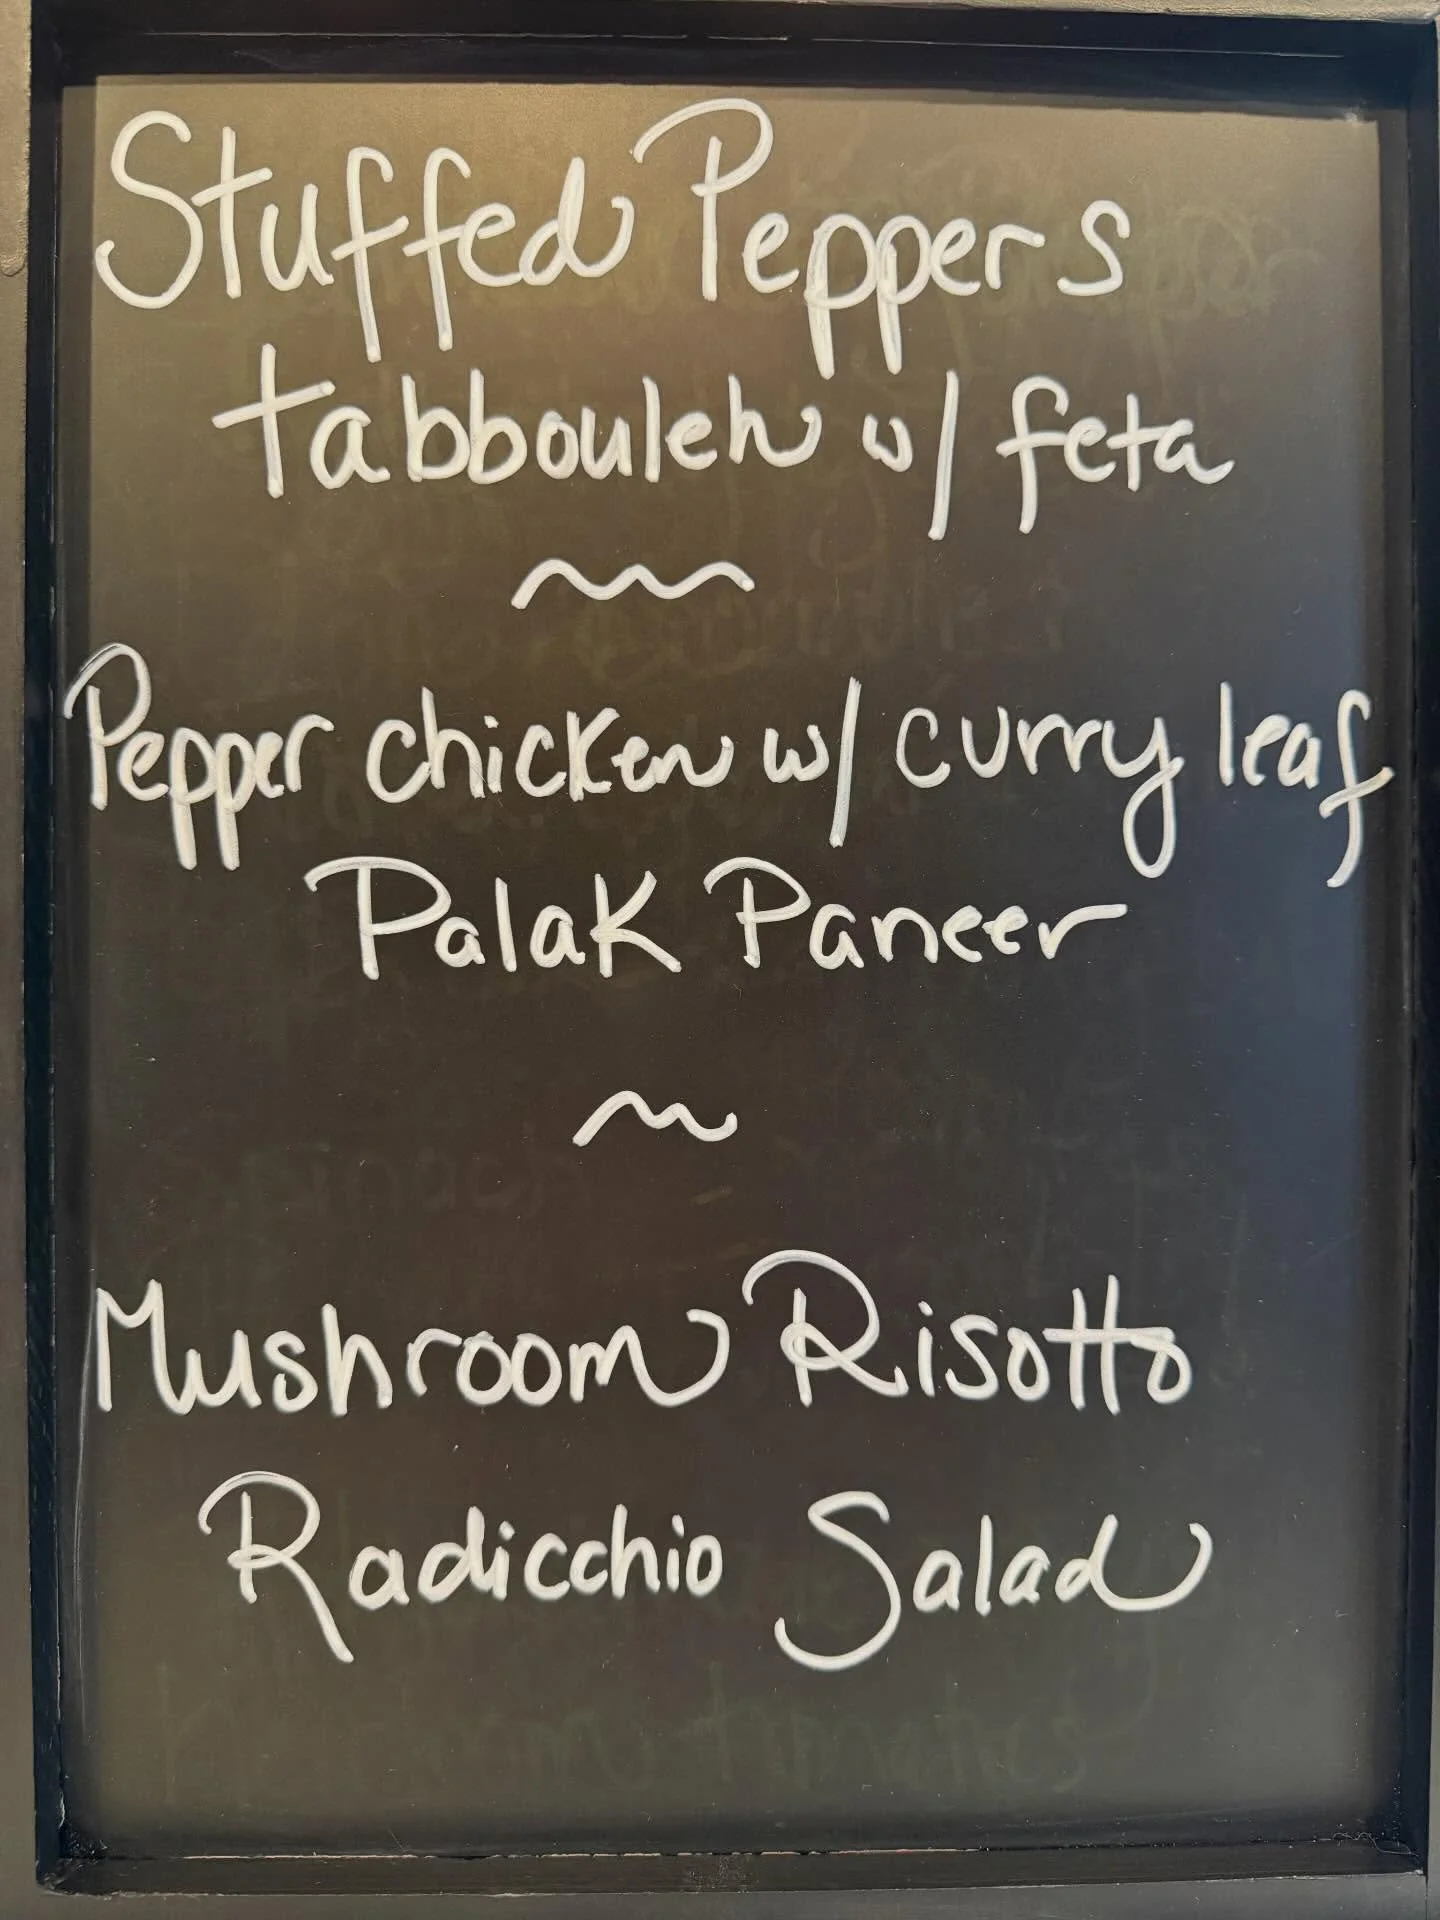 Stuffed Peppers
tabbouleh w/ feta
Pepper chicken w/ curry leaf
Palak Paneer
Mushroom Risotto
Radicchio Salad